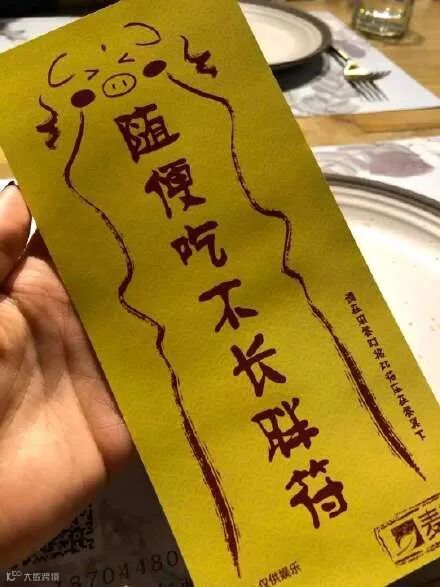 随便吃不长胖符
仅供娱乐
麦
8704480
大数跨境